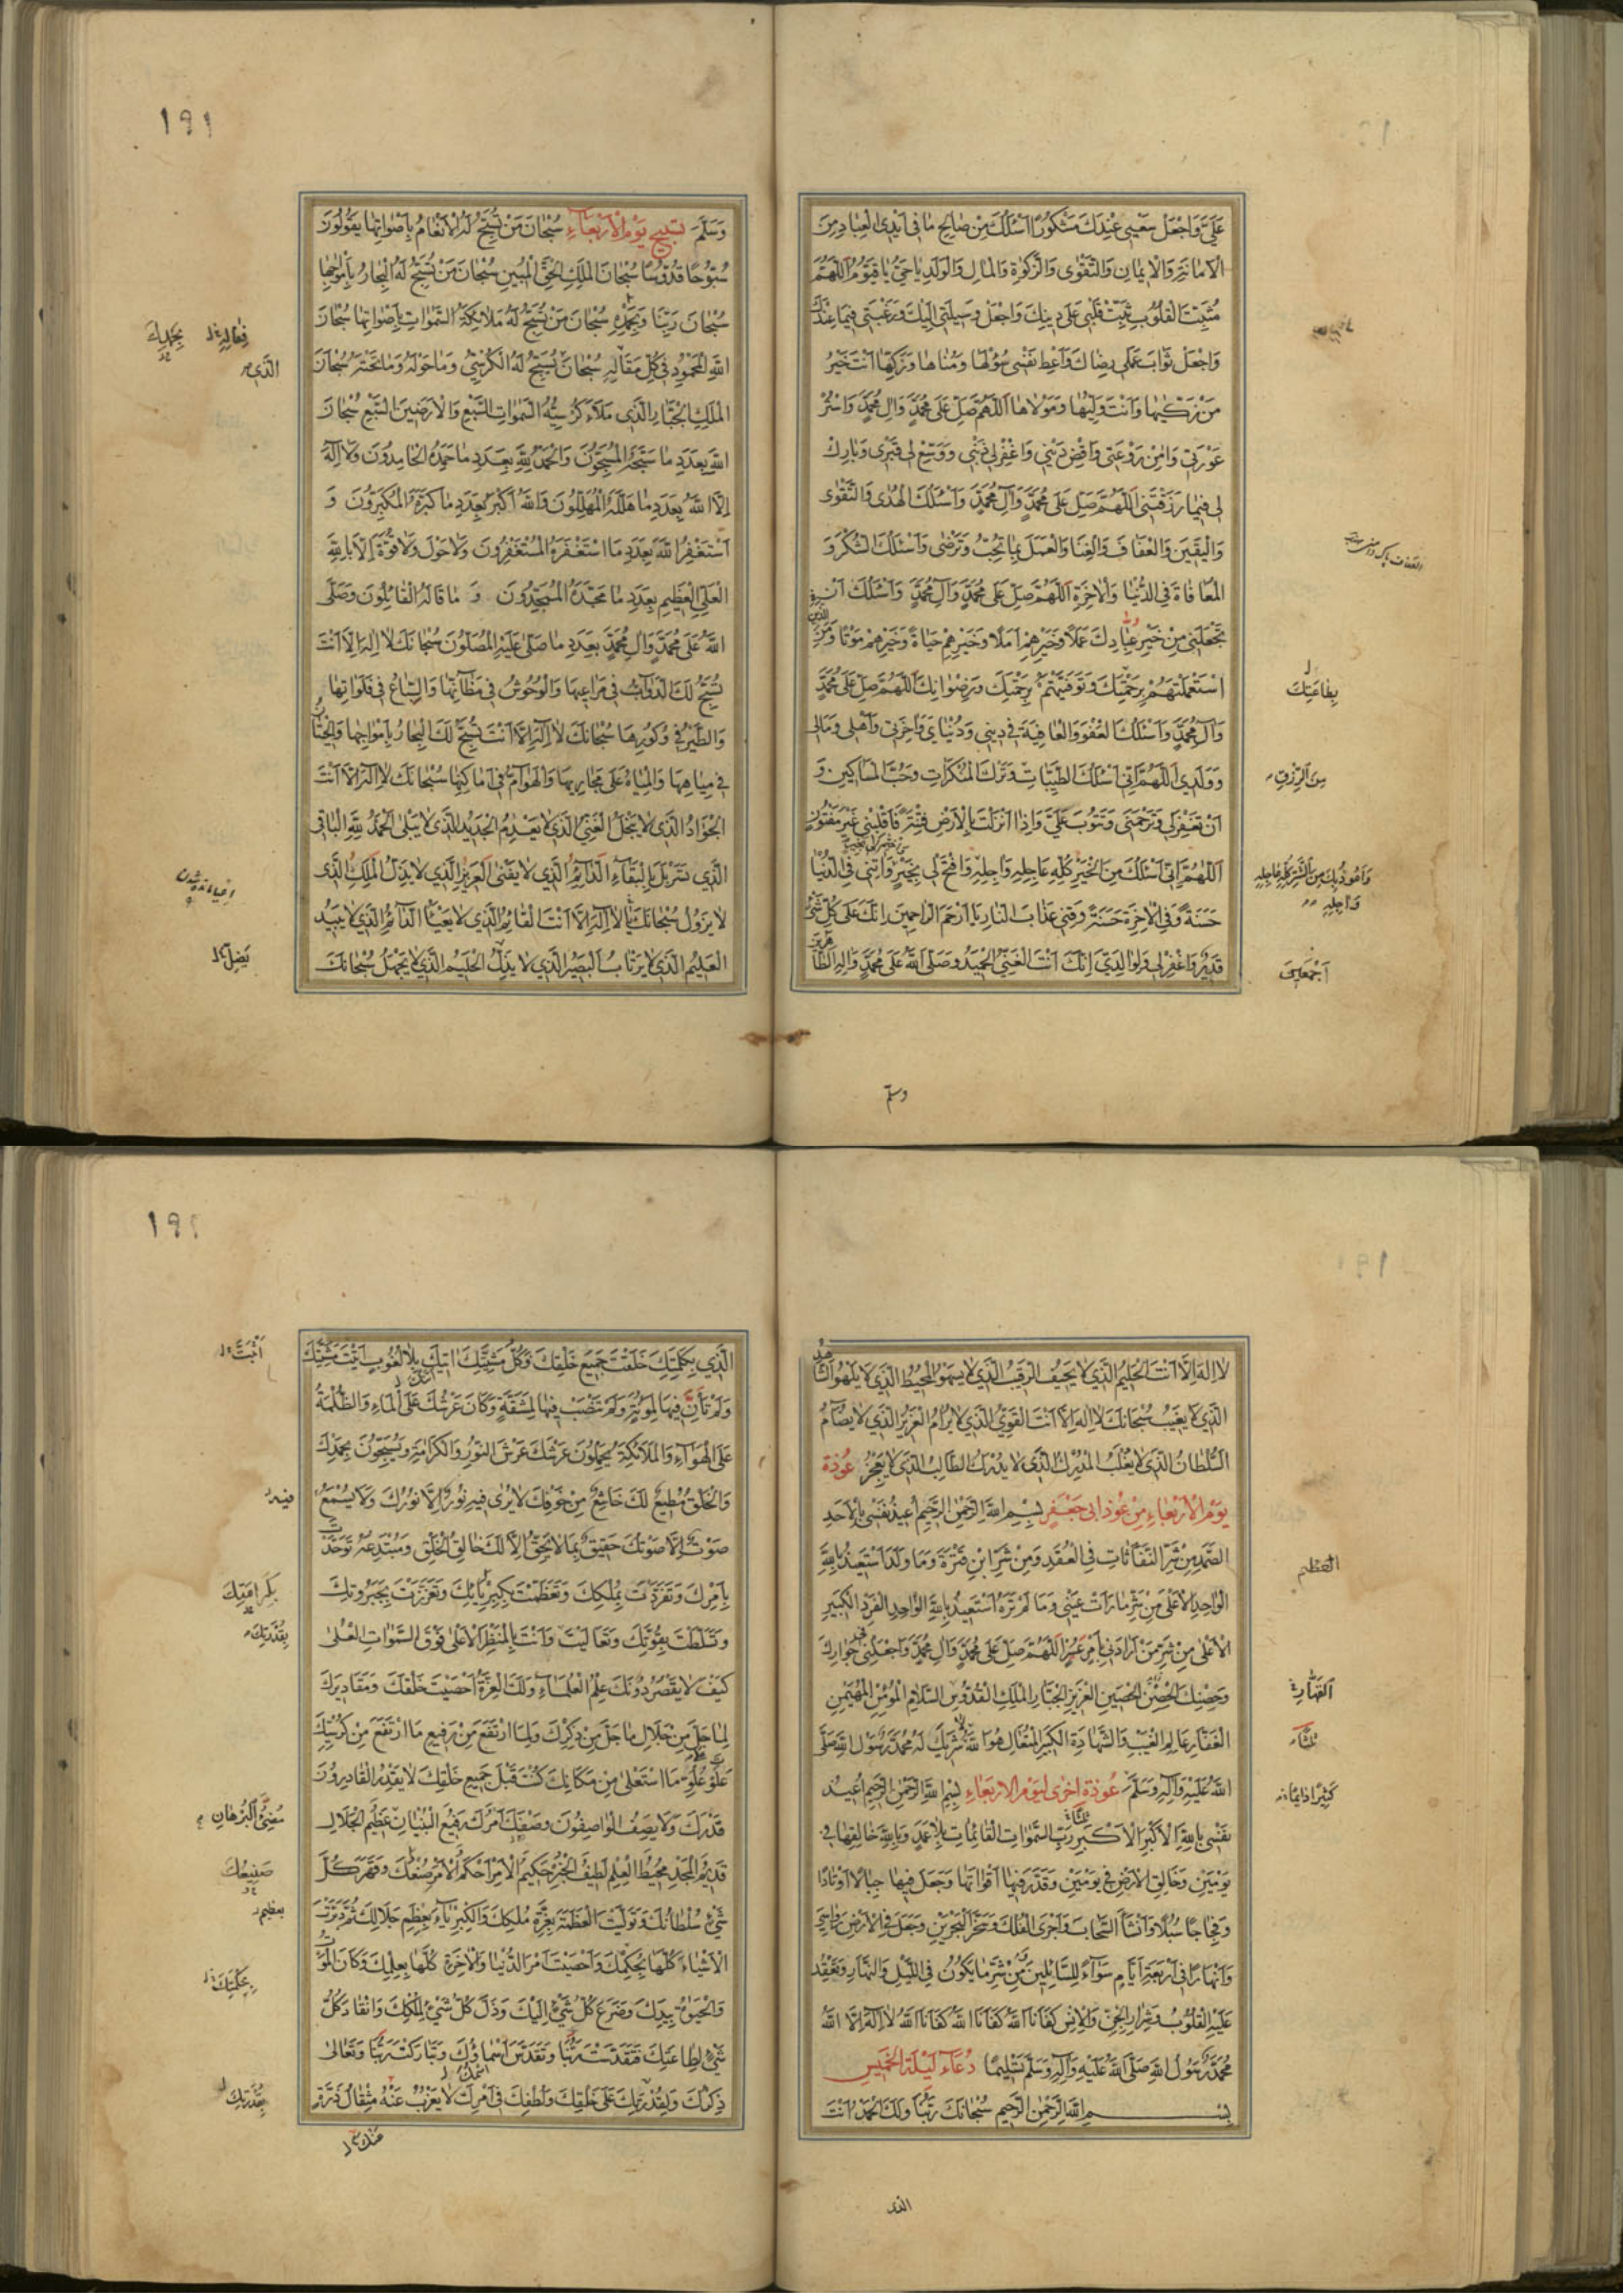 عَلَيَّ وَاجْعَل سَعْيِي عِنْدَكَ مَشْكُورًا اَسْئَلُكَ مِنْ صَالِحِ مَا فِي اَيْدِي الْعِبَادِ مِنَ
الْاَمَانَةِ وَالْاِيمَانِ وَالتَّقْوٰى وَالزَّكٰوةِ وَالْمَالِ وَالْوَلَدِ يَا حَيُّ يَا قَيُّوْمُ اَللّٰهُمَّ
مُثَبِّتَ الْقُلُوْبِ ثَبِّتْ قَلْبِي عَلٰى دِيْنِكَ وَاجْعَلْ وَسِيلَتِي اِلَيْكَ وَرَغْبَتِي فِيمَا عِنْدَكَ
وَاجْعَلْ ثَوَابَ عَمَلِي رِضَاكَ وَاَعْطِ نَفْسِي سُؤْلَهَا وَمُنَاهَا وَزَكِّهَا اَنْتَ خَيْرُ
مَنْ زَكّٰيهَا وَاَنْتَ وَلِيُّهَا وَمَوْلَاهَا اَللّٰهُمَّ صَلِّ عَلٰى مُحَمَّدٍ وَاٰلِ مُحَمَّدٍ وَاسْتُرْ
عَوْرَتِي وَاٰمِنْ رَوْعَتِي وَاقْضِ دَيْنِي وَاغْفِرْ لِي ذَنْبِي وَوَسِّعْ لِي قَبْرِي وَبَارِكْ
لِي فِيمَا رَزَقْتَنِي اَللّٰهُمَّ صَلِّ عَلٰى مُحَمَّدٍ وَاٰلِ مُحَمَّدٍ وَاَسْئَلُكَ الْهُدٰى وَالتَّقْوٰى
وَالْيَقِينَ وَالْعَفَافَ وَالْغِنَا وَالْعَمَلَ بِمَا تُحِبُّ وَتَرْضٰى وَاَسْئَلُكَ الشُّكْرَ وَ
الْمُعَافَاةَ فِي الدُّنْيَا وَالْاٰخِرَةِ اَللّٰهُمَّ صَلِّ عَلٰى مُحَمَّدٍ وَاٰلِ مُحَمَّدٍ وَاَسْئَلُكَ اَنْ
تَجْعَلَنِي مِنْ خَيْرِ عِبَادِكَ عَمَلًا وَخَيْرِهِمْ اَمَلًا وَخَيْرِهِمْ حَيَاةً وَخَيْرِهِمْ مَوْتًا وَمِنَ الَّذِينَ
اسْتَعْمَلْتَهُمْ بِرَحْمَتِكَ وَتَوَفَّيْتَهُمْ بِرَحْمَتِكَ وَبِرِضْوَانِكَ اَللّٰهُمَّ صَلِّ عَلٰى مُحَمَّدٍ
بِطَاعَتِكَ
وَاٰلِ مُحَمَّدٍ وَاَسْئَلُكَ الْعَفْوَ وَالْعَافِيَةَ فِي دِينِي وَدُنْيَايَ وَاٰخِرَتِي وَاَهْلِي وَمَالِي
وَوَلَدِي اَللّٰهُمَّ اِنِّي اَسْئَلُكَ الطَّيِّبَاتِ وَتَرْكَ الْمُنْكَرَاتِ وَحُبَّ الْمَسَاكِينِ وَ
مِنَ الرِّزْقِ
اَنْ تَغْفِرَ لِي وَتَرْحَمَنِي وَتَتُوبَ عَلَيَّ وَاِذَا اَنْزَلْتَ بِالْاَرْضِ فِتْنَةً فَاقْلِبْنِي غَيْرَ مَفْتُونٍ
اَللّٰهُمَّ اِنِّي اَسْئَلُكَ مِنَ الْخَيْرِ كُلِّهِ عَاجِلِهِ وَاٰجِلِهِ وَافْتَحْ لِي بِخَيْرٍ وَاٰتِنِي فِي الدُّنْيَا
وَاَعُوذُ بِكَ مِنَ الشَّرِّ كُلِّهِ عَاجِلِهِ
وَاٰجِلِهِ
حَسَنَةً وَفِي الْاٰخِرَةِ حَسَنَةً وَقِنِي عَذَابَ النَّارِ يَا اَرْحَمَ الرَّاحِمِينَ اِنَّكَ عَلٰى كُلِّ شَيْءٍ
قَدِيرٌ وَاغْفِرْ لِي وَلِوَالِدَيَّ اِنَّكَ اَنْتَ الْغَنِيُّ الْحَمِيدُ وَصَلَّى اللّٰهُ عَلٰى مُحَمَّدٍ وَاٰلِهِ الطَّاهِرِينَ
اَجْمَعِينَ
وسلم
١٩١
وَسَلَّمَ تَسْبِيحُ يَوْمِ الْاَرْبَعَاءِ سُبْحَانَ مَنْ تُسَبِّحُ لَهُ الْاَنْعَامُ بِاَصْوَاتِهَا يَقُولُونَ
سُبُّوحًا قُدُّوسًا سُبْحَانَ الْمَلِكِ الْحَقِّ الْمُبِينِ سُبْحَانَ مَنْ تُسَبِّحُ لَهُ الْبِحَارُ بِاَمْوَاجِهَا
سُبْحَانَ رَبِّنَا وَبِحَمْدِهِ سُبْحَانَ مَنْ تُسَبِّحُ لَهُ مَلَائِكَةُ السَّمٰوَاتِ بِاَصْوَاتِهَا سُبْحَانَ
فِعَالِهِ
بِحَمْدِكَ
اللّٰهِ الْمَحْمُودِ فِي كُلِّ مَقَالِهِ سُبْحَانَ يُسَبِّحُ لَهُ الْكُرْسِيُّ وَمَا حَوْلَهُ وَمَا تَحْتَهُ سُبْحَانَ
الَّذِي
الْمَلِكِ الْجَبَّارِ الَّذِي مَلَاَ كُرْسِيُّهُ السَّمٰوَاتِ السَّبْعَ وَالْاَرَضِينَ السَّبْعَ سُبْحَانَ
اللّٰهِ بِعَدَدِ مَا سَبَّحَهُ الْمُسَبِّحُونَ وَالْحَمْدُ لِلّٰهِ بِعَدَدِ مَا حَمِدَهُ الْحَامِدُونَ وَلَا اِلٰهَ
اِلَّا اللّٰهُ بِعَدَدِ مَا هَلَّلَهُ الْمُهَلِّلُونَ وَاللّٰهُ اَكْبَرُ بِعَدَدِ مَا كَبَّرَهُ الْمُكَبِّرُونَ وَ
اَسْتَغْفِرُ اللّٰهَ بِعَدَدِ مَا اسْتَغْفَرَهُ الْمُسْتَغْفِرُونَ وَلَا حَوْلَ وَلَا قُوَّةَ اِلَّا بِاللّٰهِ
الْعَلِيِّ الْعَظِيمِ بِعَدَدِ مَا مَجَّدَهُ الْمُمَجِّدُونَ وَ مَا قَالَهُ الْقَائِلُونَ وَصَلَّى
اللّٰهُ عَلٰى مُحَمَّدٍ وَاٰلِ مُحَمَّدٍ بِعَدَدِ مَا صَلّٰى عَلَيْهِ الْمُصَلُّونَ سُبْحَانَكَ لَا اِلٰهَ اِلَّا اَنْتَ
تُسَبِّحُ لَكَ الدَّوَابُّ فِي مَرَاعِيهَا وَالْوُحُوشُ فِي مَظَانِّهَا وَالسِّبَاعُ فِي فَلَوَاتِهَا
وَالطَّيْرُ فِي وُكُورِهَا سُبْحَانَكَ لَا اِلٰهَ اِلَّا اَنْتَ تُسَبِّحُ لَكَ الْبِحَارُ بِاَمْوَاجِهَا وَالْحِيتَانُ
فِي مِيَاهِهَا وَالْمِيَاهُ عَلٰى مَجَارِيهَا وَالْهَوَامُّ فِي اَمَاكِنِهَا سُبْحَانَكَ لَا اِلٰهَ اِلَّا اَنْتَ
الْجَوَادُ الَّذِي لَا يَبْخَلُ الْغَنِيُّ الَّذِي لَا يَعْدِمُ الْجَدِيدُ الَّذِي لَا يَبْلٰى الْحَمْدُ لِلّٰهِ الْبَاقِي
الَّذِي تَسَرْبَلَ بِالْبَقَاءِ الدَّائِمُ الَّذِي لَا يَفْنٰى الْعَزِيزُ الَّذِي لَا يَذِلُّ الْمَلِكُ الَّذِي
لَا يَزُولُ سُبْحَانَكَ لَا اِلٰهَ اِلَّا اَنْتَ الْقَائِمُ الَّذِي لَا يَعْيَا الدَّائِمُ الَّذِي لَا يَبِيدُ
الْعَلِيمُ الَّذِي لَا يَرْتَابُ الْبَصِيرُ الَّذِي لَا يَذِلُّ الْحَلِيمُ الَّذِي لَا يَجْهَلُ سُبْحَانَكَ
يَضِلُّ
لَا اِلٰهَ اِلَّا اَنْتَ الْحَلِيمُ الَّذِي لَا يَحِيفُ الرَّقِيبُ الَّذِي لَا يَسْهُو الْمُحِيطُ الَّذِي لَا يَلْهُو الشَّاهِدُ
الَّذِي لَا يَغِيبُ سُبْحَانَكَ لَا اِلٰهَ اِلَّا اَنْتَ الْقَوِيُّ الَّذِي لَا يُرَامُ الْعَزِيزُ الَّذِي لَا يُضَامُ
السُّلْطَانُ الَّذِي لَا يُغْلَبُ الْمُدْرِكُ الَّذِي لَا يُدْرَكُ الطَّالِبُ الَّذِي لَا يَعْجِزُ عُوذَةُ
يَوْمِ الْاَرْبَعَاءِ مِنْ عُوَذِ اَبِي جَعْفَرٍ بِسْمِ اللّٰهِ الرَّحْمٰنِ الرَّحِيمِ اُعِيذُ نَفْسِي بِالْاَحَدِ
الصَّمَدِ مِنْ شَرِّ النَّفَّاثَاتِ فِي الْعُقَدِ وَمِنْ شَرِّ ابْنِ قِتْرَةَ وَمَا وَلَدَ اَسْتَعِيذُ بِاللّٰهِ
الْوَاحِدِ الْاَعْلٰى مِنْ شَرِّ مَا رَاَتْ عَيْنِي وَمَا لَمْ تَرَهُ اَسْتَعِيذُ بِاللّٰهِ الْوَاحِدِ الْفَرْدِ الْكَبِيرِ
الْاَعْلٰى مِنْ شَرِّ مَنْ اَرَادَنِي بِاَمْرٍ عَسِيرٍ اَللّٰهُمَّ صَلِّ عَلٰى مُحَمَّدٍ وَاٰلِ مُحَمَّدٍ وَاجْعَلْنِي فِي جِوَارِكَ
وَحِصْنِكَ الْحَصِينِ الْعَزِيزِ الْجَبَّارِ الْمَلِكِ الْقُدُّوسِ السَّلَامِ الْمُؤْمِنِ الْمُهَيْمِنِ
الْقَهَّارِ
الْغَفَّارِ عَالِمِ الْغَيْبِ وَالشَّهَادَةِ الْكَبِيرِ الْمُتَعَالِ هُوَ اللّٰهُ لَا شَرِيكَ لَهُ مُحَمَّدٌ رَسُولُ اللّٰهِ صَلَّى
اللّٰهُ عَلَيْهِ وَاٰلِهِ وَسَلَّمَ عُوذَةٌ اُخْرٰى لِيَوْمِ الْاَرْبَعَاءِ بِسْمِ اللّٰهِ الرَّحْمٰنِ الرَّحِيمِ اُعِيذُ
كَثِيرًا دَائِمًا
نَفْسِي بِاللّٰهِ الْاَكْبَرِ الْاَكْبَرِ رَبِّ السَّمٰوَاتِ الْقَائِمَاتِ بِلَا عَمَدٍ وَبِاللّٰهِ خَالِقِهَا فِي
يَوْمَيْنِ وَخَالِقِ الْاَرْضِ فِي يَوْمَيْنِ وَقَدَّرَ فِيهَا اَقْوَاتَهَا وَجَعَلَ فِيهَا جِبَالًا اَوْتَادًا
وَفِجَاجًا سُبُلًا وَاَنْشَاَ السَّحَابَ وَاَجْرَى الْفُلْكَ وَسَخَّرَ الْبَحْرَيْنِ وَجَعَلَ فِي الْاَرْضِ رَوَاسِيَ
وَاَنْهَارًا فِي اَرْبَعَةِ اَيَّامٍ سَوَاءً لِلسَّائِلِينَ مِنْ شَرِّ مَا يَكُونُ فِي اللَّيْلِ وَالنَّهَارِ وَتَعْقِدُ
عَلَيْهِ الْقُلُوبُ وَشِرَارِ الْجِنِّ وَالْاِنْسِ كَفَانَا اللّٰهُ كَفَانَا اللّٰهُ كَفَانَا اللّٰهُ لَا اِلٰهَ اِلَّا اللّٰهُ
مُحَمَّدٌ رَسُولُ اللّٰهِ صَلَّى اللّٰهُ عَلَيْهِ وَاٰلِهِ وَسَلَّمَ تَسْلِيمًا دُعَاءُ لَيْلَةِ الْخَمِيسِ
بِسْمِ اللّٰهِ الرَّحْمٰنِ الرَّحِيمِ سُبْحَانَكَ رَبَّنَا وَلَكَ الْحَمْدُ اَنْتَ
الذی
الَّذِي بِكَلِمَتِكَ خَلَقْتَ جَمِيعَ خَلْقِكَ وَكُلُّ مَشِيَّتِكَ اَتَتْكَ بِلَا لُغُوبٍ اَثْبَتَّ مَشِيَّتَكَ
اَثْبَتَّ
وَلَمْ تَاَنَّ فِيهَا لِمَؤُنَةٍ وَلَمْ تَنْصَبْ فِيهَا لِمَشَقَّةٍ وَكَانَ عَرْشُكَ عَلَى الْمَاءِ وَالظُّلْمَةُ
عَلَى الْهَوَاءِ وَالْمَلَائِكَةُ يَحْمِلُونَ عَرْشَكَ عَرْشَ النُّورِ وَالْكَرَامَةِ وَيُسَبِّحُونَ بِحَمْدِكَ
وَالْخَلْقُ مُطِيعٌ لَكَ خَاشِعٌ مِنْ خَوْفِكَ لَا يُرٰى فِيهِ نُورٌ اِلَّا نُورُكَ وَلَا يُسْمَعُ
فِيهِ
صَوْتٌ اِلَّا صَوْتُكَ حَقِيقٌ بِمَا لَا يَحِقُّ اِلَّا لَكَ خَالِقُ الْخَلْقِ وَمُبْتَدِعُهُ تَوَحَّدْتَ
بِاَمْرِكَ وَتَفَرَّدْتَ بِمُلْكِكَ وَتَعَظَّمْتَ بِكِبْرِيَائِكَ وَتَعَزَّزْتَ بِجَبَرُوتِكَ
وَتَسَلَّطْتَ بِقُوَّتِكَ وَتَعَالَيْتَ وَاَنْتَ بِالْمَنْظَرِ الْاَعْلٰى فَوْقَ السَّمٰوَاتِ الْعُلٰى
بِقُدْرَتِكَ
كَيْفَ لَا يَقْصُرُ دُونَكَ عِلْمُ الْعُلَمَاءِ وَلَكَ الْعِزَّةُ اَحْصَيْتَ خَلْقَكَ وَمَقَادِيرَكَ
لِمَا جَلَّ مِنْ جَلَالِ مَا جَلَّ مِنْ ذِكْرِكَ وَلِمَا ارْتَفَعَ مِنْ رَفِيعِ مَا ارْتَفَعَ مِنْ كُرْسِيِّكَ
عَلَوْتَ عُلُوِّ مَا اسْتَعْلٰى مِنْ مَكَانِكَ كُنْتَ قَبْلَ جَمِيعِ خَلْقِكَ لَا يَقْدِرُ الْقَادِرُونَ
قَدْرَكَ وَلَا يَصِفُ الْوَاصِفُونَ وَصْفَكَ اَمْرُكَ رَفِيعُ الْبُنْيَانِ عَظِيمُ الْجَلَالِ
مُضِيءُ الْبُرْهَانِ
قَدِيمُ الْمَجْدِ مُحِيطُ الْعِلْمِ لَطِيفُ الْخُبْرِ حَكِيمُ الْاَمْرِ اَحْكَمَ الْاَمْرَ صُنْعُكَ وَقَهَرَ كُلَّ
شَيْءٍ سُلْطَانُكَ وَتَوَلَّيْتَ الْعَظَمَةَ بِعِزَّةِ مُلْكِكَ وَالْكِبْرِيَاءَ بِعَظِيمِ جَلَالِكَ ثُمَّ دَبَّرْتَ
الْاَشْيَاءَ كُلَّهَا بِحُكْمِكَ وَاَحْصَيْتَ اَمْرَ الدُّنْيَا وَالْاٰخِرَةِ كُلَّهَا بِعِلْمِكَ وَكَانَ الْمَوْتُ
بِحِكْمَتِكَ
وَالْحَيٰوةُ بِيَدِكَ وَضَرَعَ كُلُّ شَيْءٍ اِلَيْكَ وَذَلَّ كُلُّ شَيْءٍ لِمُلْكِكَ وَانْقَادَ كُلُّ
شَيْءٍ لِطَاعَتِكَ فَتَقَدَّسْتَ رَبَّنَا وَتَقَدَّسَ اَسْمَاؤُكَ وَتَبَارَكْتَ رَبَّنَا وَتَعَالٰى
ذِكْرُكَ وَلِقُدْرَتِكَ عَلٰى خَلْقِكَ وَلُطْفِكَ فِي اَمْرِكَ لَا يَعْزُبُ عَنْهُ مِثْقَالُ ذَرَّةٍ
بِقُدْرَتِكَ